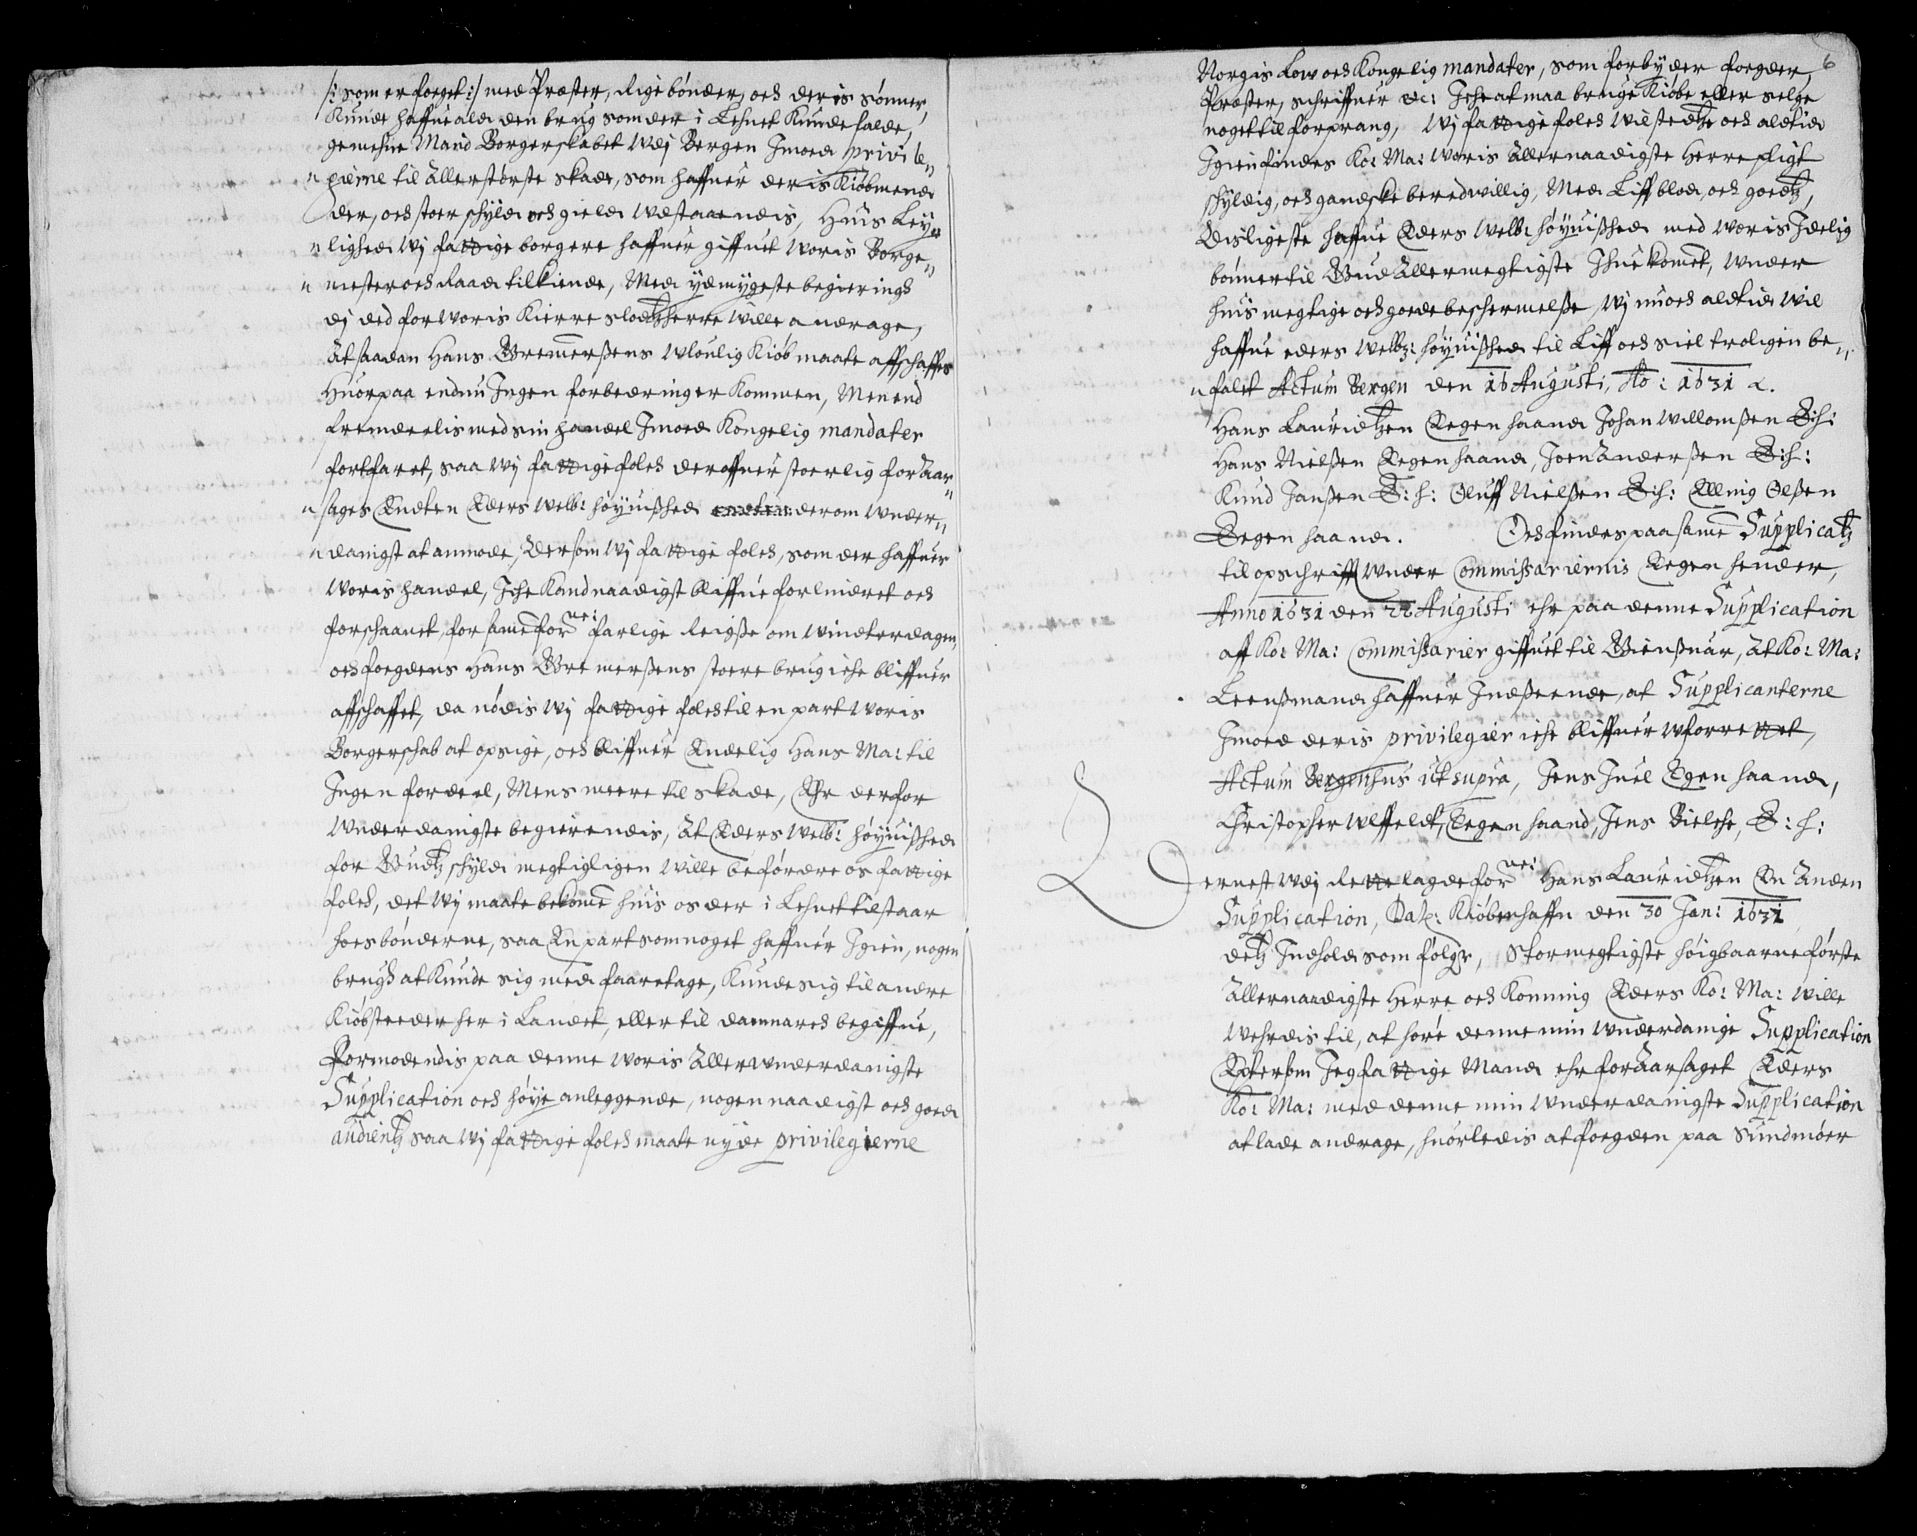 /: som er foeget :/ med Præster, Rige bønder, och deris sønner,
Kunde haffue ald den brug som der i Lehnet Kunde falde,
gemehne Mand Borgerskabet udj Bergen Jmoed privile„
„gierne til Allerstørste skade, som haffuer deris Kiøbmend
der, och stoer schyld och gield udestaaendis, Huis Ley„
„lighed Wj fattige borgere haffuer giffuet Woris Borge„
„mester och Raad tilkiende, Med ydmygeste begieringh
dj det for Woris Kierre slodtzherre Wille andrage,
At saadan Hans Bremerßens Wloulig Kiøbmaate affschaffes
Huorpaa endnu Jngen forbedringer Kommen, Men end
fremdeelis med sin handel Jmoed Kongelig mandater
fortfaret, saa Wj fattige folch deroffuer stoerlig for Aar„
„sages Endten Eders Welb: høyuißhed derom Wnder„
„danigst at anmode, Dersom Wj fattige folch, som der haffuer
Woris handel, Jche Kand naadigst bliffue forlindret och
forschaanet, for samme forne: farlige Reigße om Winterdagen,
och foegdens Hans Bremerßens stoere brug iche bliffuer
affschaffet, da nødis Wj fattige folch til en part Woris
Borgerschab at opsige, och bliffuer Endelig Hans Ma: til
Jngen fordeel, Mens meere til skade, Ehr derfor
Wnderdanigste begierendis, At Eders Welb: høyuißhed
for Gudtz schyld megtigligen Wille befordre os fattige
folch, det Wj maate bekomme huis os der i Lehnet tilstaar
hoes bønderne, saa En part som noget haffuer Jgien, nogen
brugh at Kunde sig med faaretage, Kunde sig til andre
Kiøbsteeder her i Landet, eller til danmarch begiffue,
Formodendis paa denne Woris Allerwnderdanigste
Supplication och høye anleggende, nogen naadigst och goed
audientz saa Wj fattige folch maate nyde privilegierne
6
Norgis Low och Kongelig mandater, som forbyder foegder,
Præster, schriffuer etc: Jche at maa bruge Kiøbe eller selge
noget til forprang, Wj fattige folch Wil stedtze och altid
Jgien findes Ko: Ma: Woris Allernaadigste Herre pligt
schyldig, och gandske beredwillig, Med Liff blod, och goedtz,
Disligeste haffue Eders Welb: høyuißhed med Woris Jdelig
bønner til Gud Allermegtigste Jhuekomet, Wnder
huis megtige och goede beschermelße, Wj nu och altid Wil
haffue eders Welbr: høyuißhed til Liff och siel troligen be„
„falet Actum Bergen den 16 Augusti, Ao: 1631 &.
Hans Lauridtzen Eegen haand Johan Willomßen E:h:
Hans Nielßen Eegen haand, Joen Anderßen E:h:
Knud Janßen E:h: Oluff Nielßen E:h: Ellnig Olßen
Eegen haand. Och findes paa samme Supplicatz
til opschrifft Wnder Commißariernis Eegen hender,
Anno 1631 den 22 Augusti ehr paa denne Supplication
aff Ko: Ma: Commißarier giffuet til Giensuar, At Ko: Ma:
Leenßmand haffuer Jndßeende, at Supplicanterne
Jmoed deris privilegier iche bliffuer Wforrettet,
Actum Bergenhus ut supra, Jens Juel Egen haand,
Christopher Ulffeldt, Eegen haand, Jens Bielche, E:h:
Dernest udj Rette lagde forne: Hans Lauridtzen En Anden
Supplication, Dat: Kiøbenhaffn den 30 Jan: 1631
detz Jndhold som følger, Stormegtigste høigbaarne første
Allernaadigste Herre och Konning Eders Ko: Ma: Wille
Werdis til, at høre denne min Wnderdanige Supplication
Efftersom Jeg fattige Mand ehr for Aarsaget Eders
Ko: Ma: med denne min Wnderdanigste Supplication
at lade andrage, huorledis at foegden paa Sundmøer